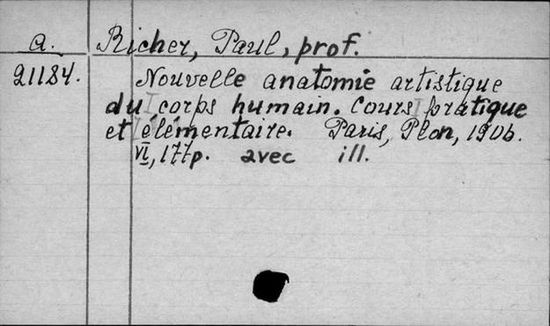 a. Richer, Paul, prof.
21184. Nouvelle anatomie artistique
du corps humain. Cours pratique
et élémentaire. Paris, Plon, 1906.
VI, 177p. avec ill.